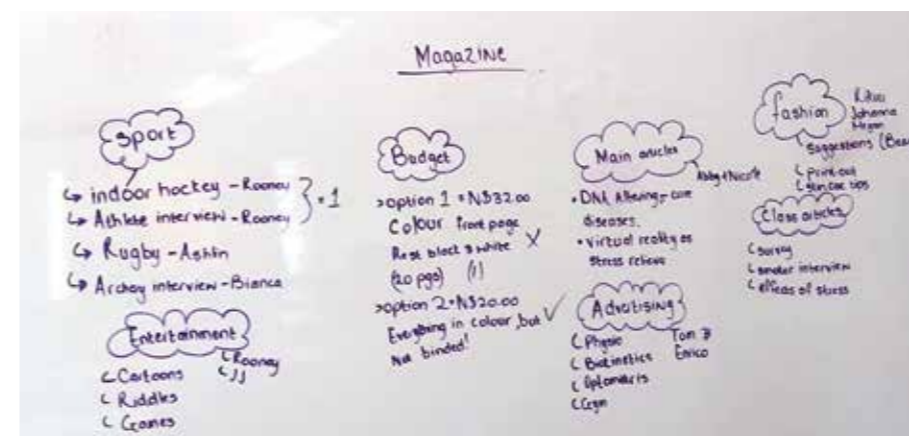 Magazine
Sport
indoor hockey - Rooney
Athlete interview - Rooney
} = 1
Rugby - Ashlin
Archery interview - Bianca
Entertainment
Rooney
JJ
Cartoons
Riddles
Games
Budget
>option 1 = N$32.00
Colour front page
Rest black & white X
(20 pgs) (1)
>option 2 = N$20.00
Everything in colour, but ✓
Not binded!
Main articles
Abby + Nicole
• DNA Altering - cure
diseases.
• Virtual reality as
Stress relieve
Advertising
Physio
Biokinetics
Gym
Tom
Enrico
fashion
Johanna
Megan
Suggestions
Print out
Skincare tips
Class articles
Survey
interview
effects of stress